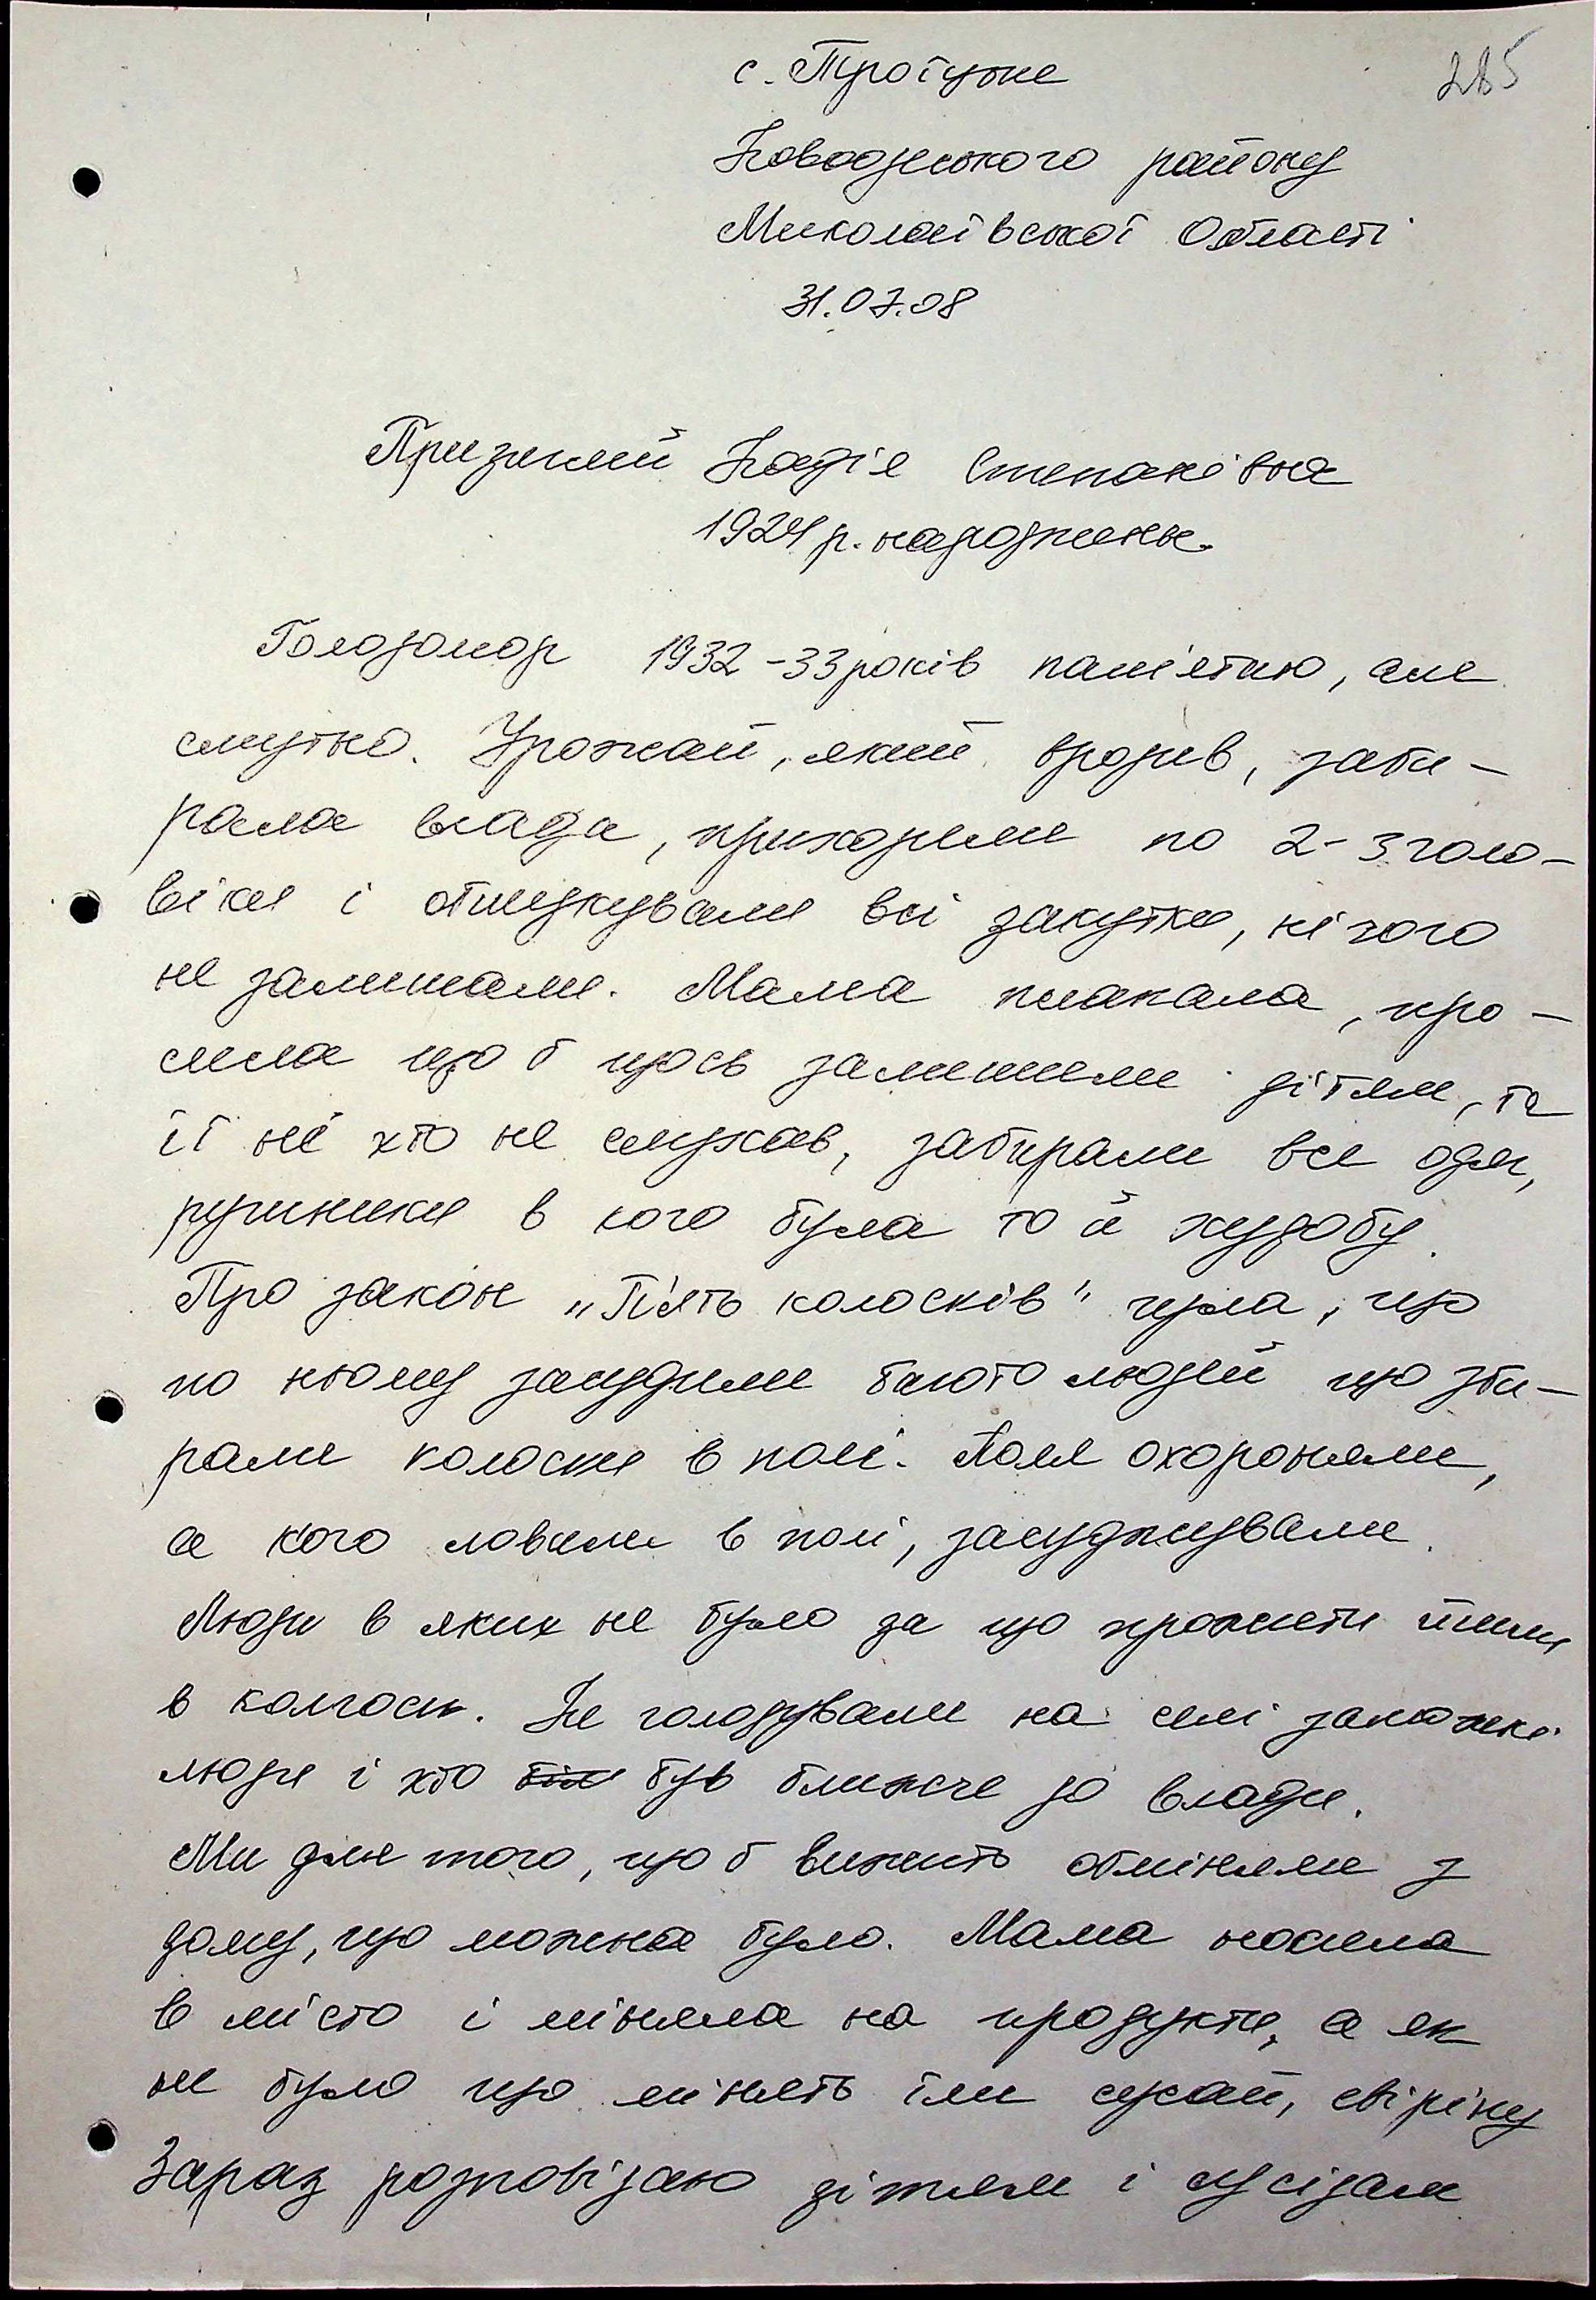 с. Троїцьке
285
Новоодеського району
Миколаївської Області
31.07.08
Надія Степанівна
1924 р. народження.
Голодомор 1932-33 років памʼятаю, але
смутно. Урожай, який вродив, заби-
рала влада, приходили по 2-3 чоло-
віки і обшукували всі закутки, нічого
не залишали. Мама плакала, про-
сила щоб щось залишили дітям, та
її ні хто не слухав, забирали все одяг,
рушники в кого була то й худобу.
Про закон „Пʼять колосків" чула, що
по ньому засудили багато людей що зби-
рали колоски в полі. Поля охороняли,
а кого ловили в полі, засуджували.
Люди в яких не було за що прожити йшли
в колгосп. Не голодували на селі заможні
люди і хто був ближче до влади.
Ми для того, щоб вижить обміняли з
дому, що можна було. Мама носила
в місто і міняла на продукти, а як
не було що мінять їли сухай, свіріпу
Зараз розповідаю дітям і сусідам